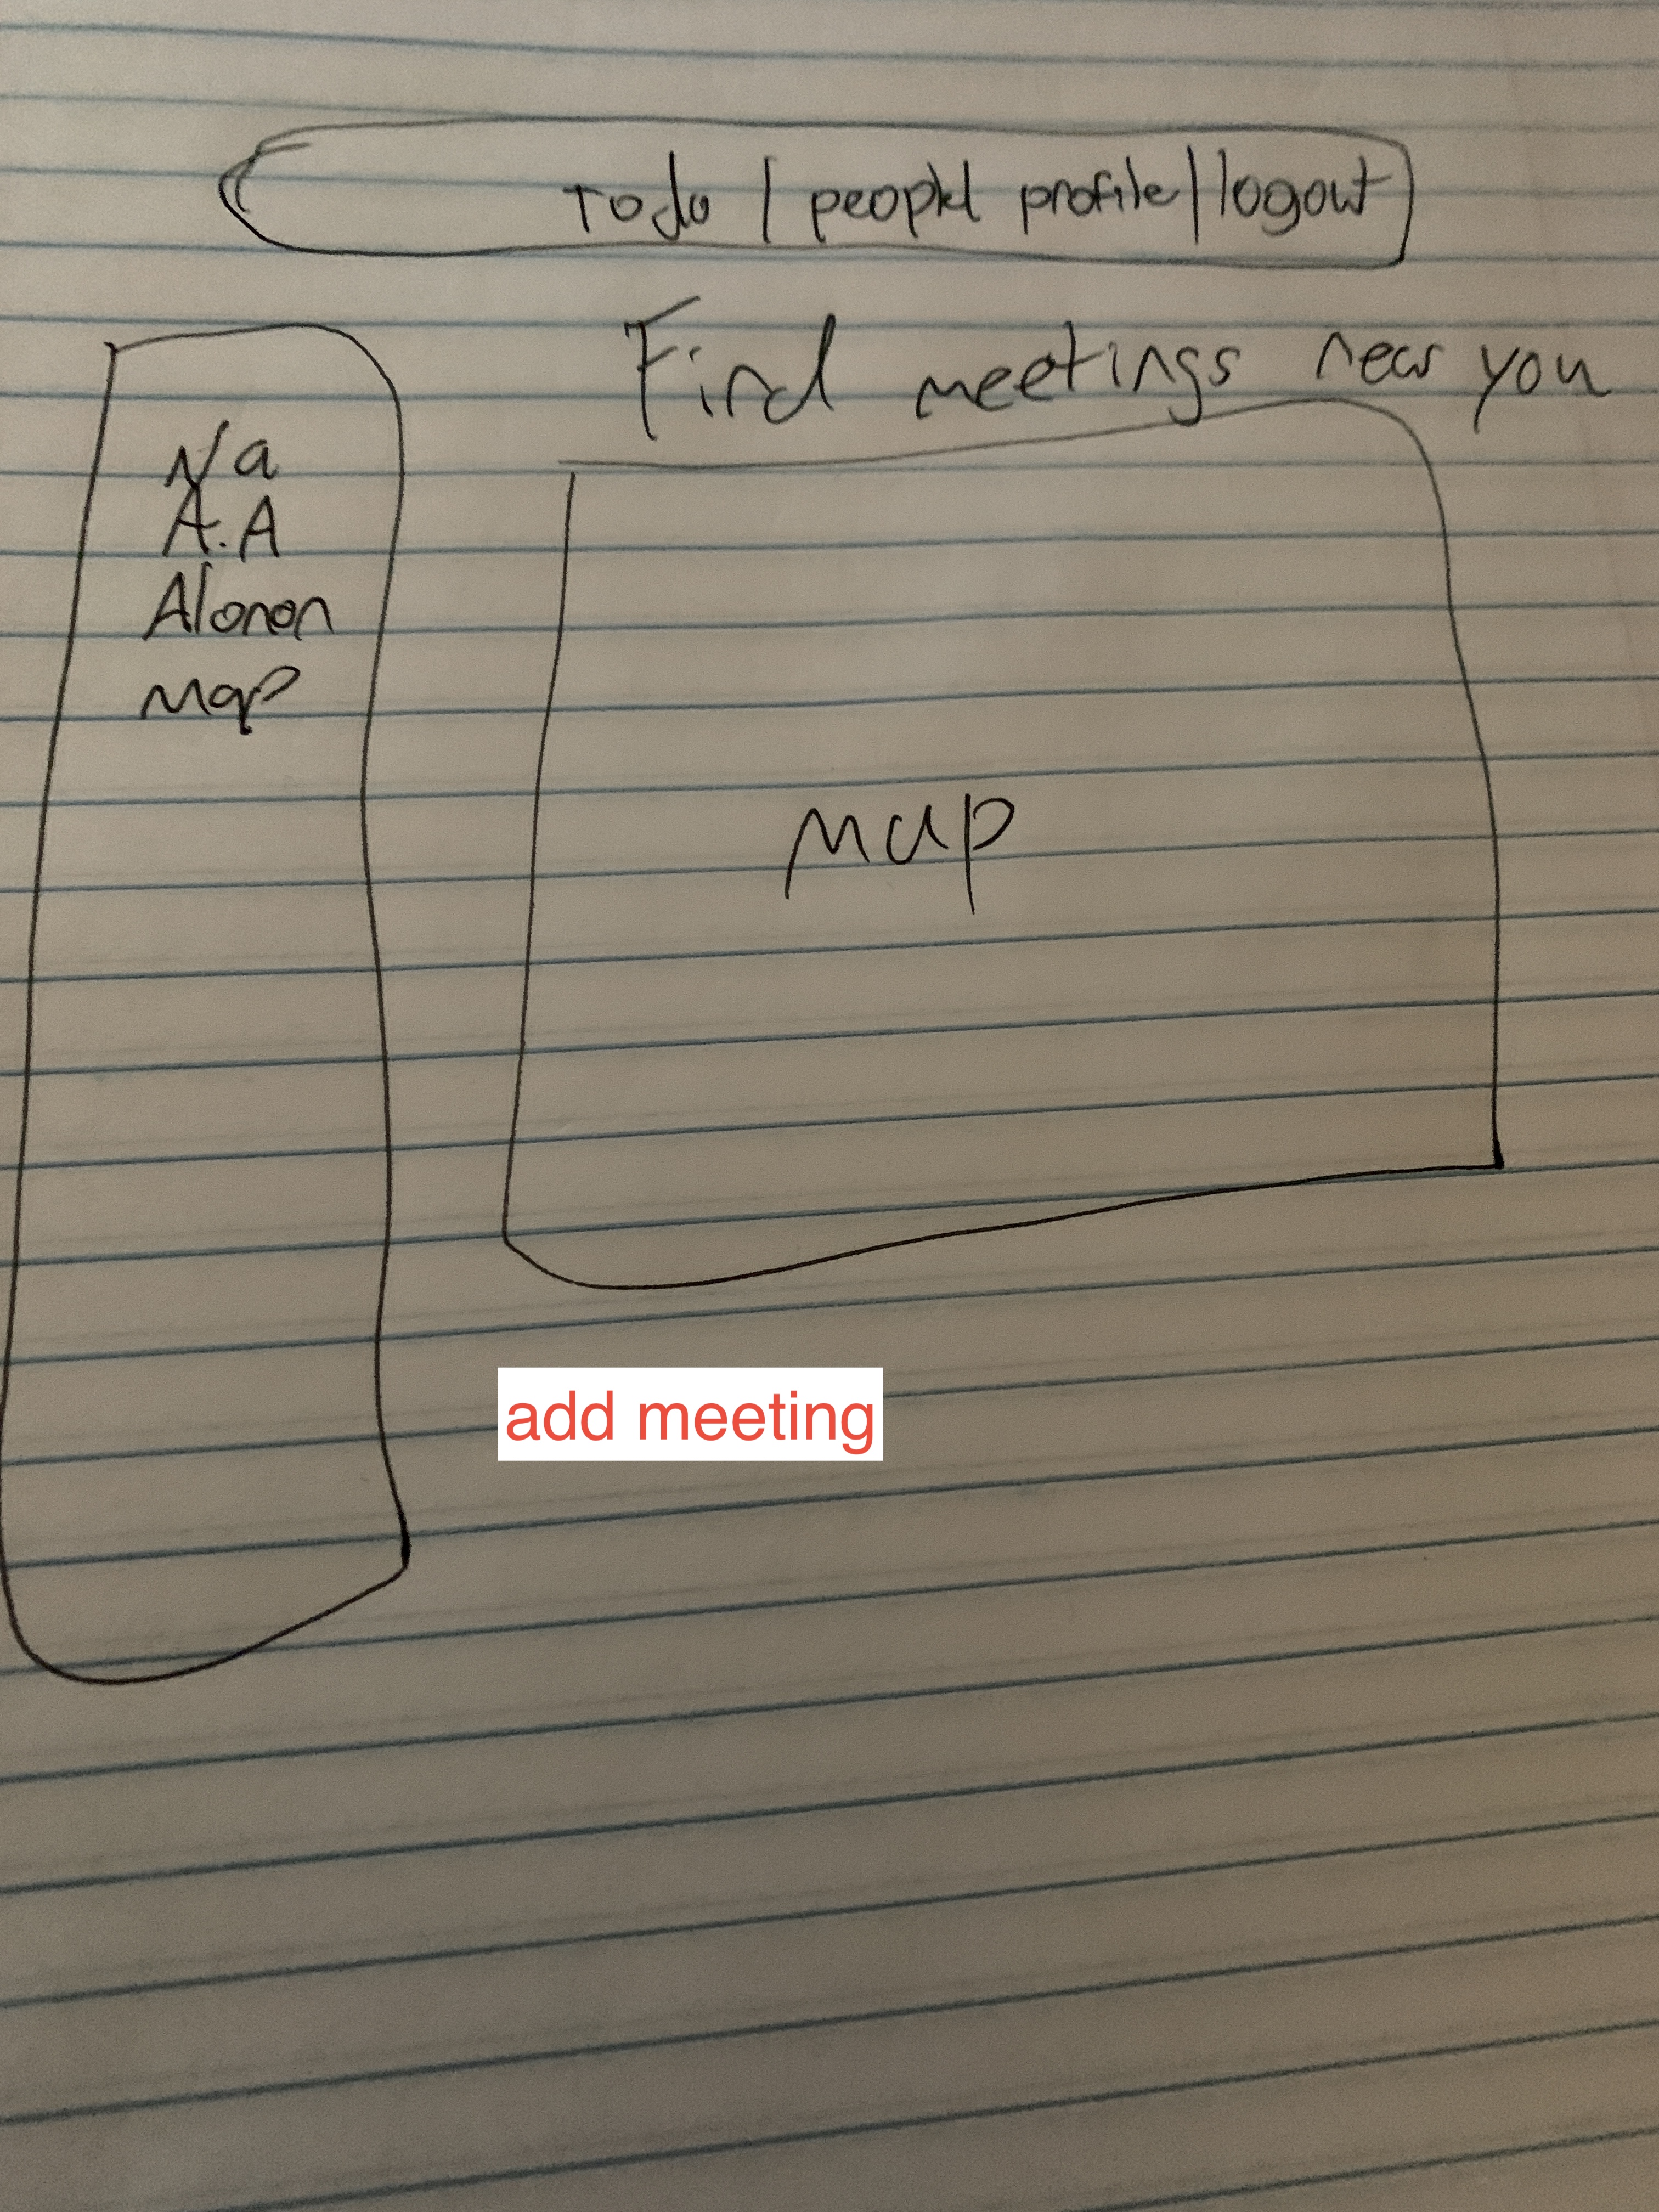 Todo | people| profile | logout
Find meetings near you
N/a
A.A
Alanon
map
map
add meeting